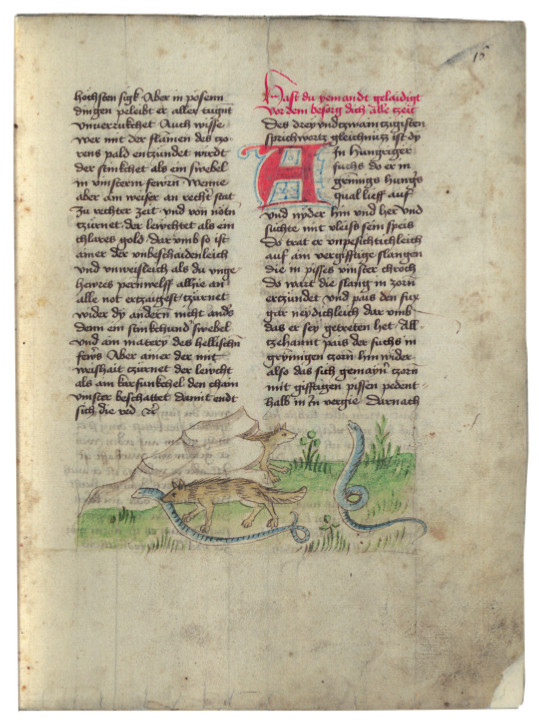 15
hochsten sigk Aber in posenn
dingen peleibt er aller tugnt
vnuerruckhet Auch wisse
wer mit der flamen das zo-
rens pald entzundet wirdt
der stinkhet als ein swebel
in vnserem sewrn Wenne
aber am weiser an recht stat
Zu rechter zeit vnd von notn
tzurnet der lewchtet als ein
chlares gold dar vmb so ist
amer der vnbeschaidenleich
vnd vnweisleich als du ynge
hewres pernwelff allhie an
alle not ertzaigest tzurnet
wider dy andern nicht ands
denn ein stinkhund swebel
vnd am matery des hellischn
fewrs Aber amer der mit
weishait tzurnet der lewcht
als am karfunkchel den chain
vinster beschattet Damit endt
sich die red
Hast du yemandt gelaidigt
Vor dem besorg dich alle tzeit
Des drey vndtzwaintzigsten
sprichwortz gleichnuzz ist dy
A in hungriger
fuchs do er in
genngs hungs
qual lieff auf
vnd nyder hin vnd her vnd
suchte mit vleiss sein speis
Do trat er vnpesichtichleich
auf ain vergifftige slangen
die in pisses vinster chroch
do wart die slang in zorn
entzundet vnd pais den fux
gar neydichleich dar vmb
das er sey getreten het All-
tzehannt pais der fuchs in
grymigen tzorn hin wider
also das sich gemayn tzorn
mit gifftigen pissen pedent-
halb in vergie Darnach